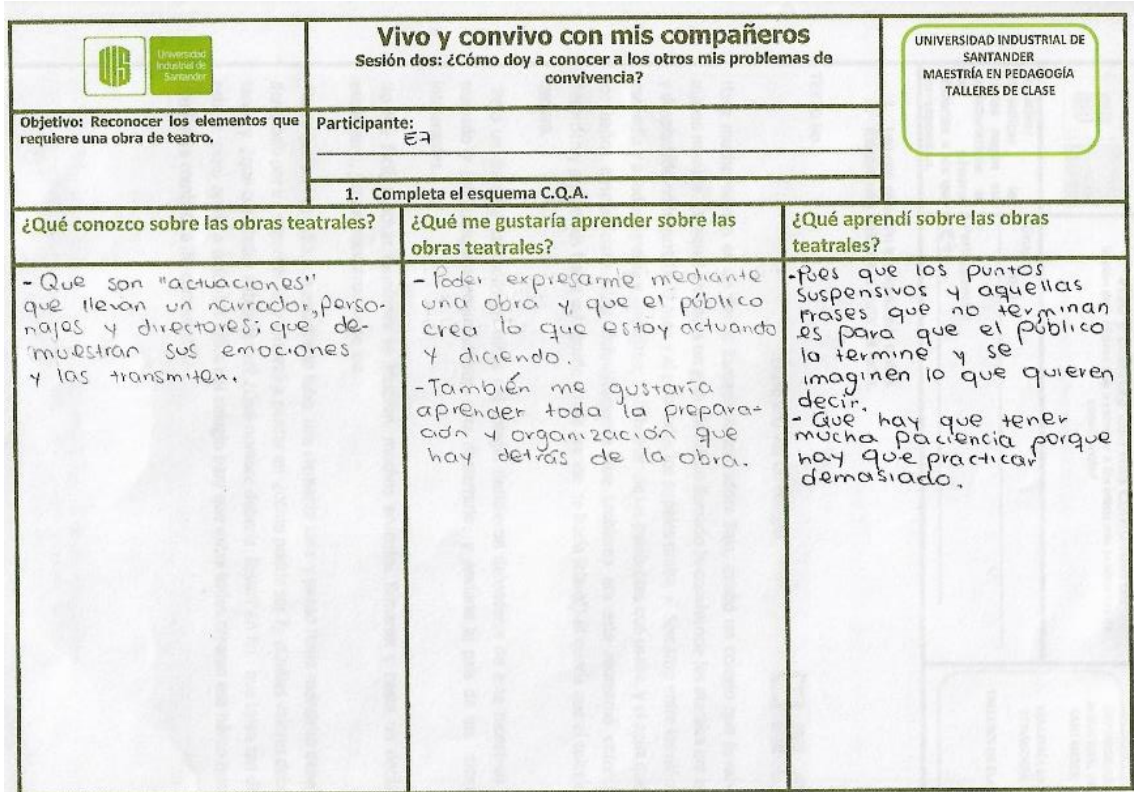 Universidad
Industrial de
Santander
Vivo y convivo con mis compañeros
Sesión dos: ¿Cómo doy a conocer a los otros mis problemas de
convivencia?
UNIVERSIDAD INDUSTRIAL DE
SANTANDER
MAESTRÍA EN PEDAGOGÍA
TALLERES DE CLASE
Objetivo: Reconocer los elementos que
requiere una obra de teatro.
Participante:
E7
1. Completa el esquema C.Q.A.
¿Qué conozco sobre las obras teatrales?
- Que son "actuaciones"
que llevan un narrador, perso-
najes y directores; que de-
muestran sus emociones
y las transmiten.
¿Qué me gustaría aprender sobre las
obras teatrales?
- Poder expresarme mediante
una obra y que el público
crea lo que estoy actuando
y diciendo.
- También me gustaría
aprender toda la prepara-
ción y organización que
hay detrás de la obra.
¿Qué aprendí sobre las obras
teatrales?
- Pues que los puntos
suspensivos y aquellas
frases que no terminan
es para que el público
lo termine y se
imaginen lo que quieren
decir.
- Que hay que tener
mucha paciencia porque
hay que practicar
demasiado.